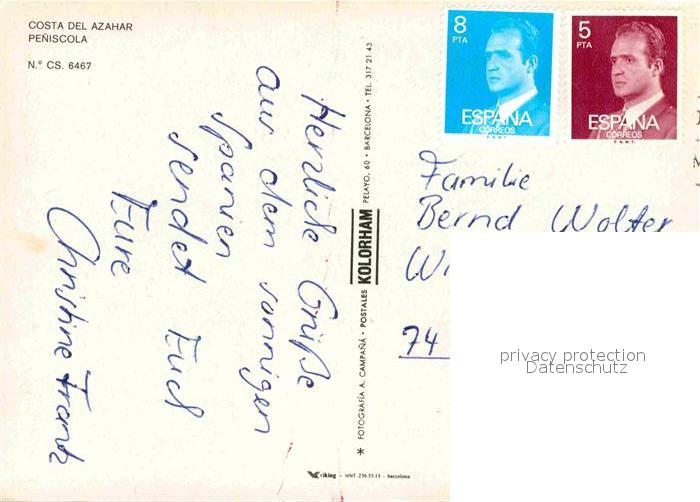 COSTA DEL AZAHAR
PEÑISCOLA
N.º CS. 6467
Herzliche Grüße
aus dem sonnigen
Spanien
sendet Euch
Eure
Christine Frantz
* FOTOGRAFÍA A. CAMPAÑÁ • POSTALES KOLORHAM PELAYO, 60 • BARCELONA • TEL. 317 21 43
viking - telef. 236.55.13 - barcelona
8
PTA
ESPAÑA
CORREOS
F.N.M.T.
5
PTA
ESPAÑA
CORREOS
F.N.M.T.
Familie
Bernd Wolter
Wi
74
privacy protection
Datenschutz